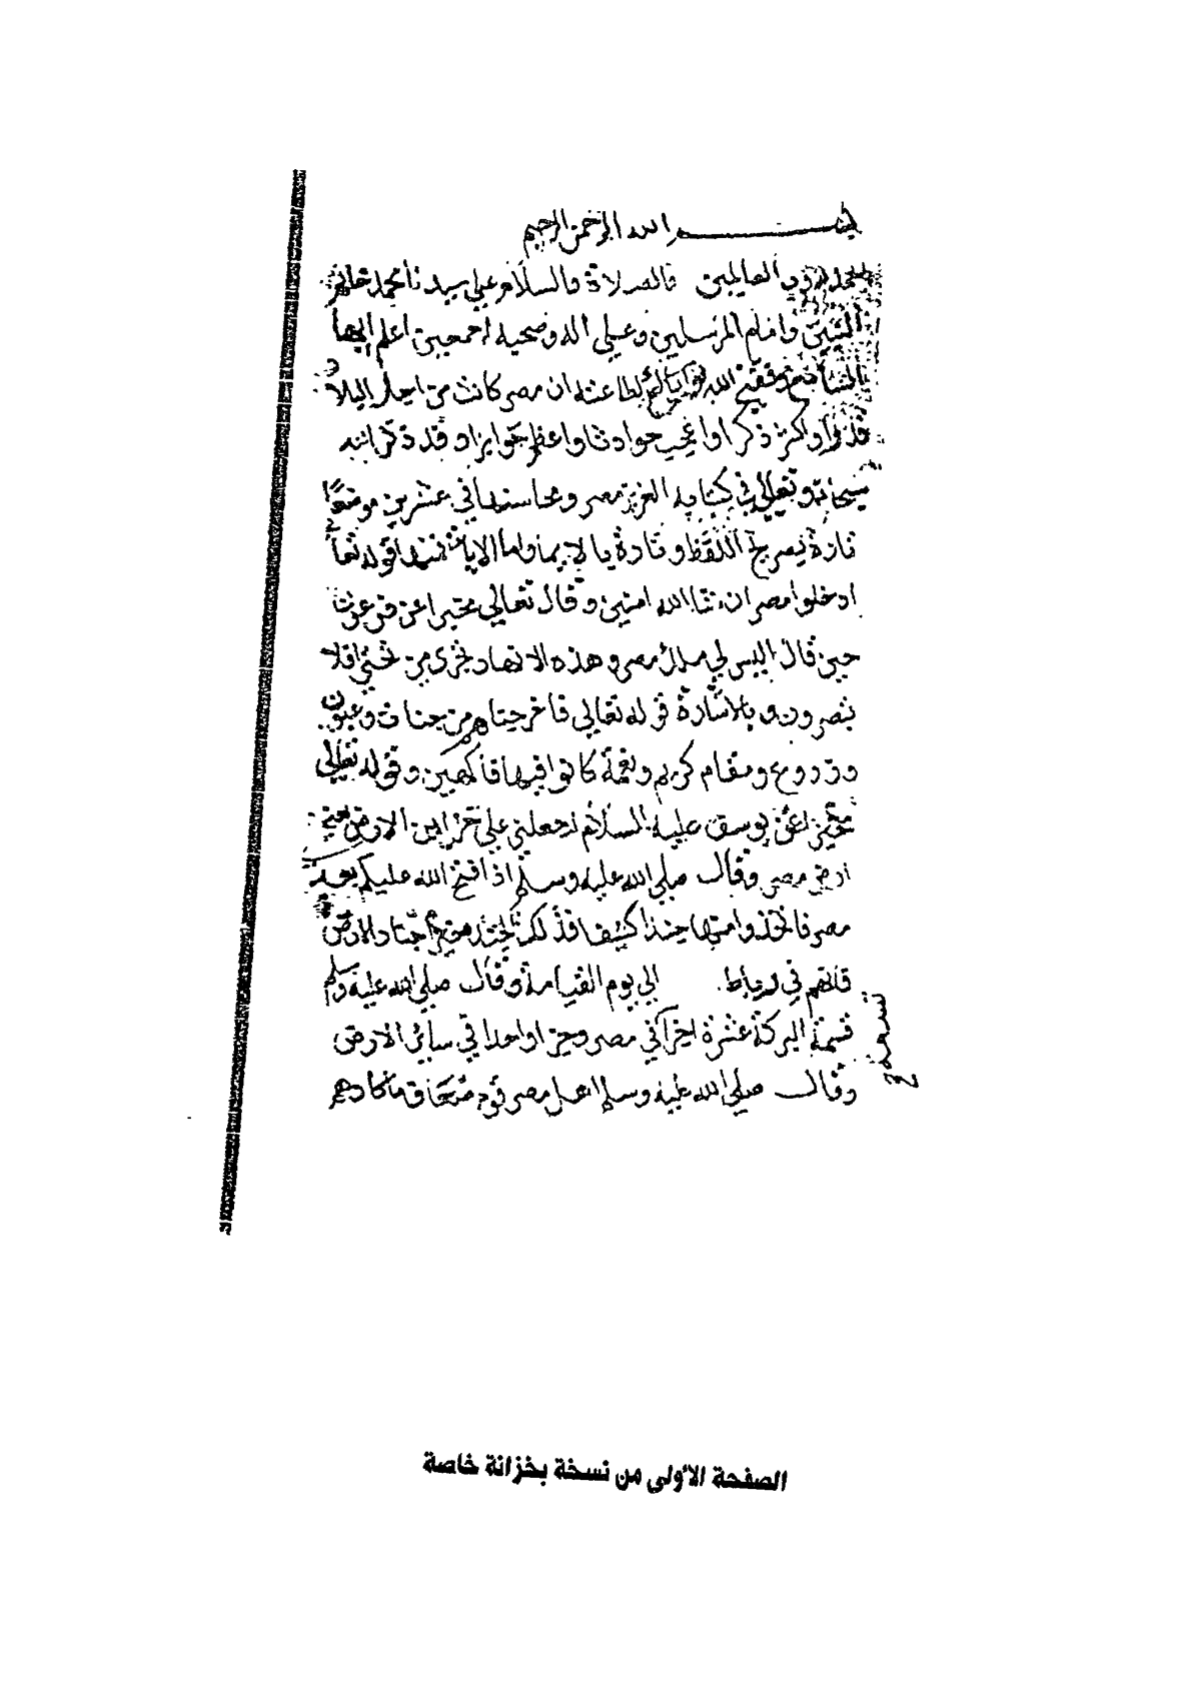 بسم الله الرحمن الرحيم
الحمد لله رب العالمين والصلاة والسلام علي سيدنا محمد خاتم
النبيين وامام المرسلين وعلي اله وصحبه اجمعين اعلم ايها
وفقني الله واياكم لطاعته ان مصر كانت من اجل البلاد
قدرا واكثر ذكرا واعجب حوادثا واعظم جوايزا وقد ذكر الله
سبحانه وتعالي في كتابه العزيز مصر ومحاسنها في عشرين موضعا
تارة بصريح اللفظ وتارة بالايما واما الايات فمنها قوله تعا
ادخلوا مصر ان شا الله امنين وقال تعالي مخبرا عن فرعون
حين قال اليس لي ملك مصر وهذه الانهار تجري من تحتي افلا
تبصرون وبالاشارة قوله تعالي فاخرجناهم من جنات وعيون
وزروع ومقام كريم ونعمة كانوا فيها فاكهين وقوله تعالي
مخبرا عن يوسف عليه السلام اجعلني علي خزاين الارض يعني
ارض مصر وقال صلي الله عليه وسلم اذا افتح الله عليكم بعدي
مصر فاتخذوا منها جندا كثيفا فذلك الجند من خير اجناد الارض
فانهم في رباط الي يوم القيامة وقال صلي الله عليه وسلم
قسمة البركة عشرة اجزا في مصر وجزا واحدا في سائر الارض
تسعة
وقال صلي الله عليه وسلم اهل مصر قوم ضعاف ما كادهم
الصفحة الأولى من نسخة بخزانة خاصة